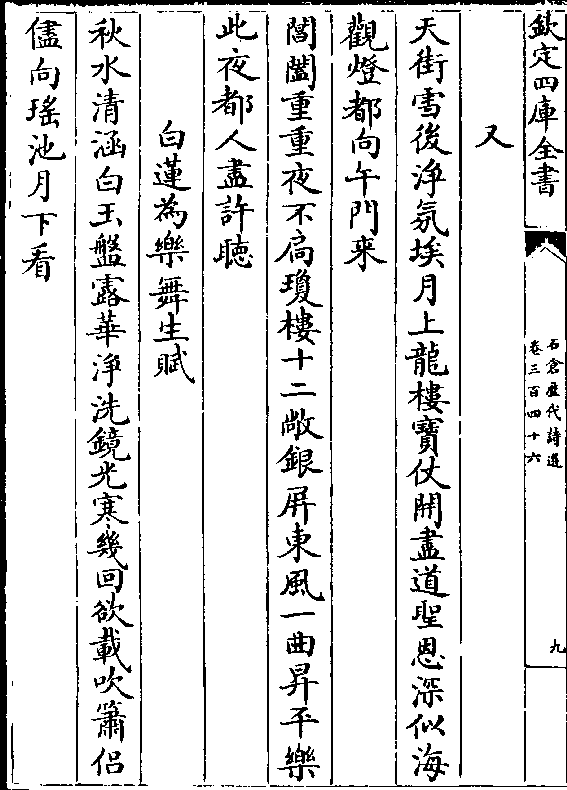 欽定四庫全書
石倉歷代詩選
卷三百四十六
九
又
天街雪後淨氛埃月上龍樓寳仗開盡道聖恩深似海
觀燈都向午門来
閶闔重重夜不扃瓊樓十二敞銀屏東風一曲昇平樂
此夜都人盡許聴
白蓮為樂舞生賦
秋水清涵白玉盤露華淨洗鏡光寒幾回欲載吹簫侣
儘向瑤池月下看